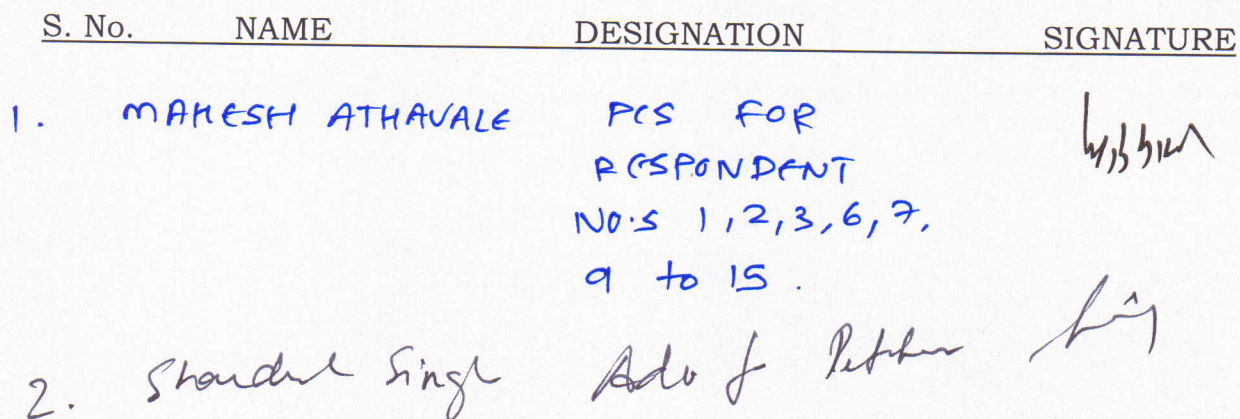 S. No. NAME DESIGNATION SIGNATURE
1. MAHESH ATHAVALE PCS FOR
RESPONDENT
NO.S 1,2,3,6,7,
9 to 15.
2. Singh Adv f